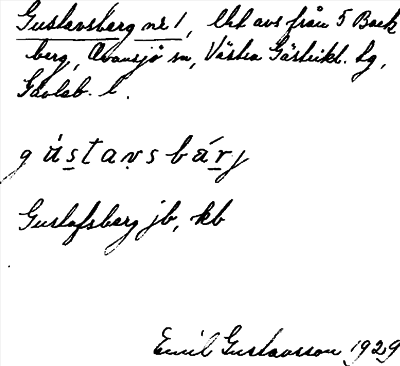 Gustavsberg nr 1, lht avs från 5 Back
berg, Ovansjö sn, Västra Gästrikl. hg,
Gävleb. l.
gústavsbárj
Gustafsberg jb, kb
Emil Gustavsson 1929